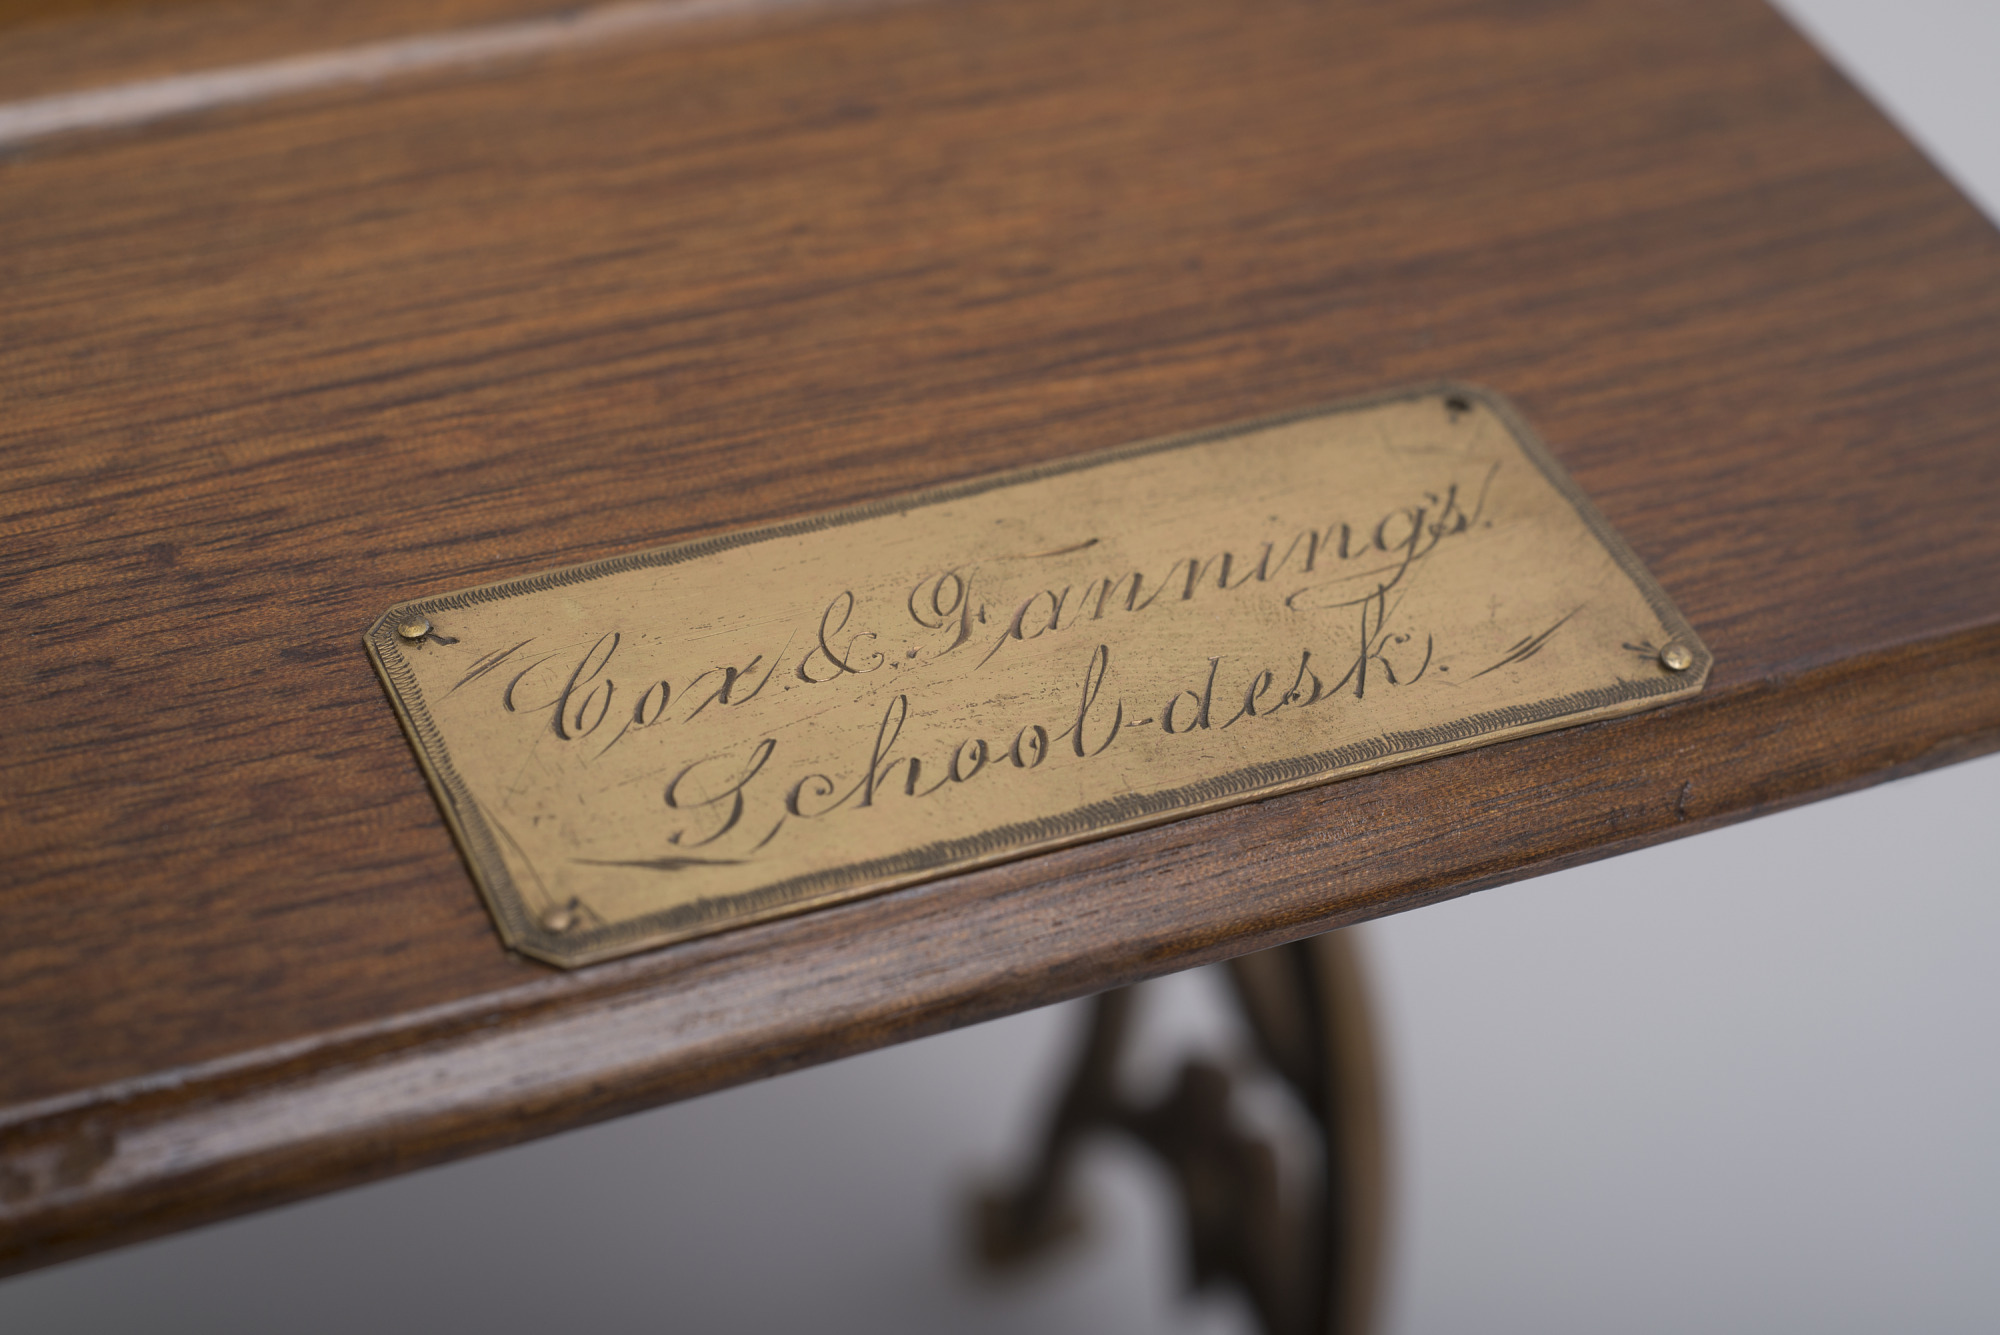 Cox & Fanning's.
School-desk.